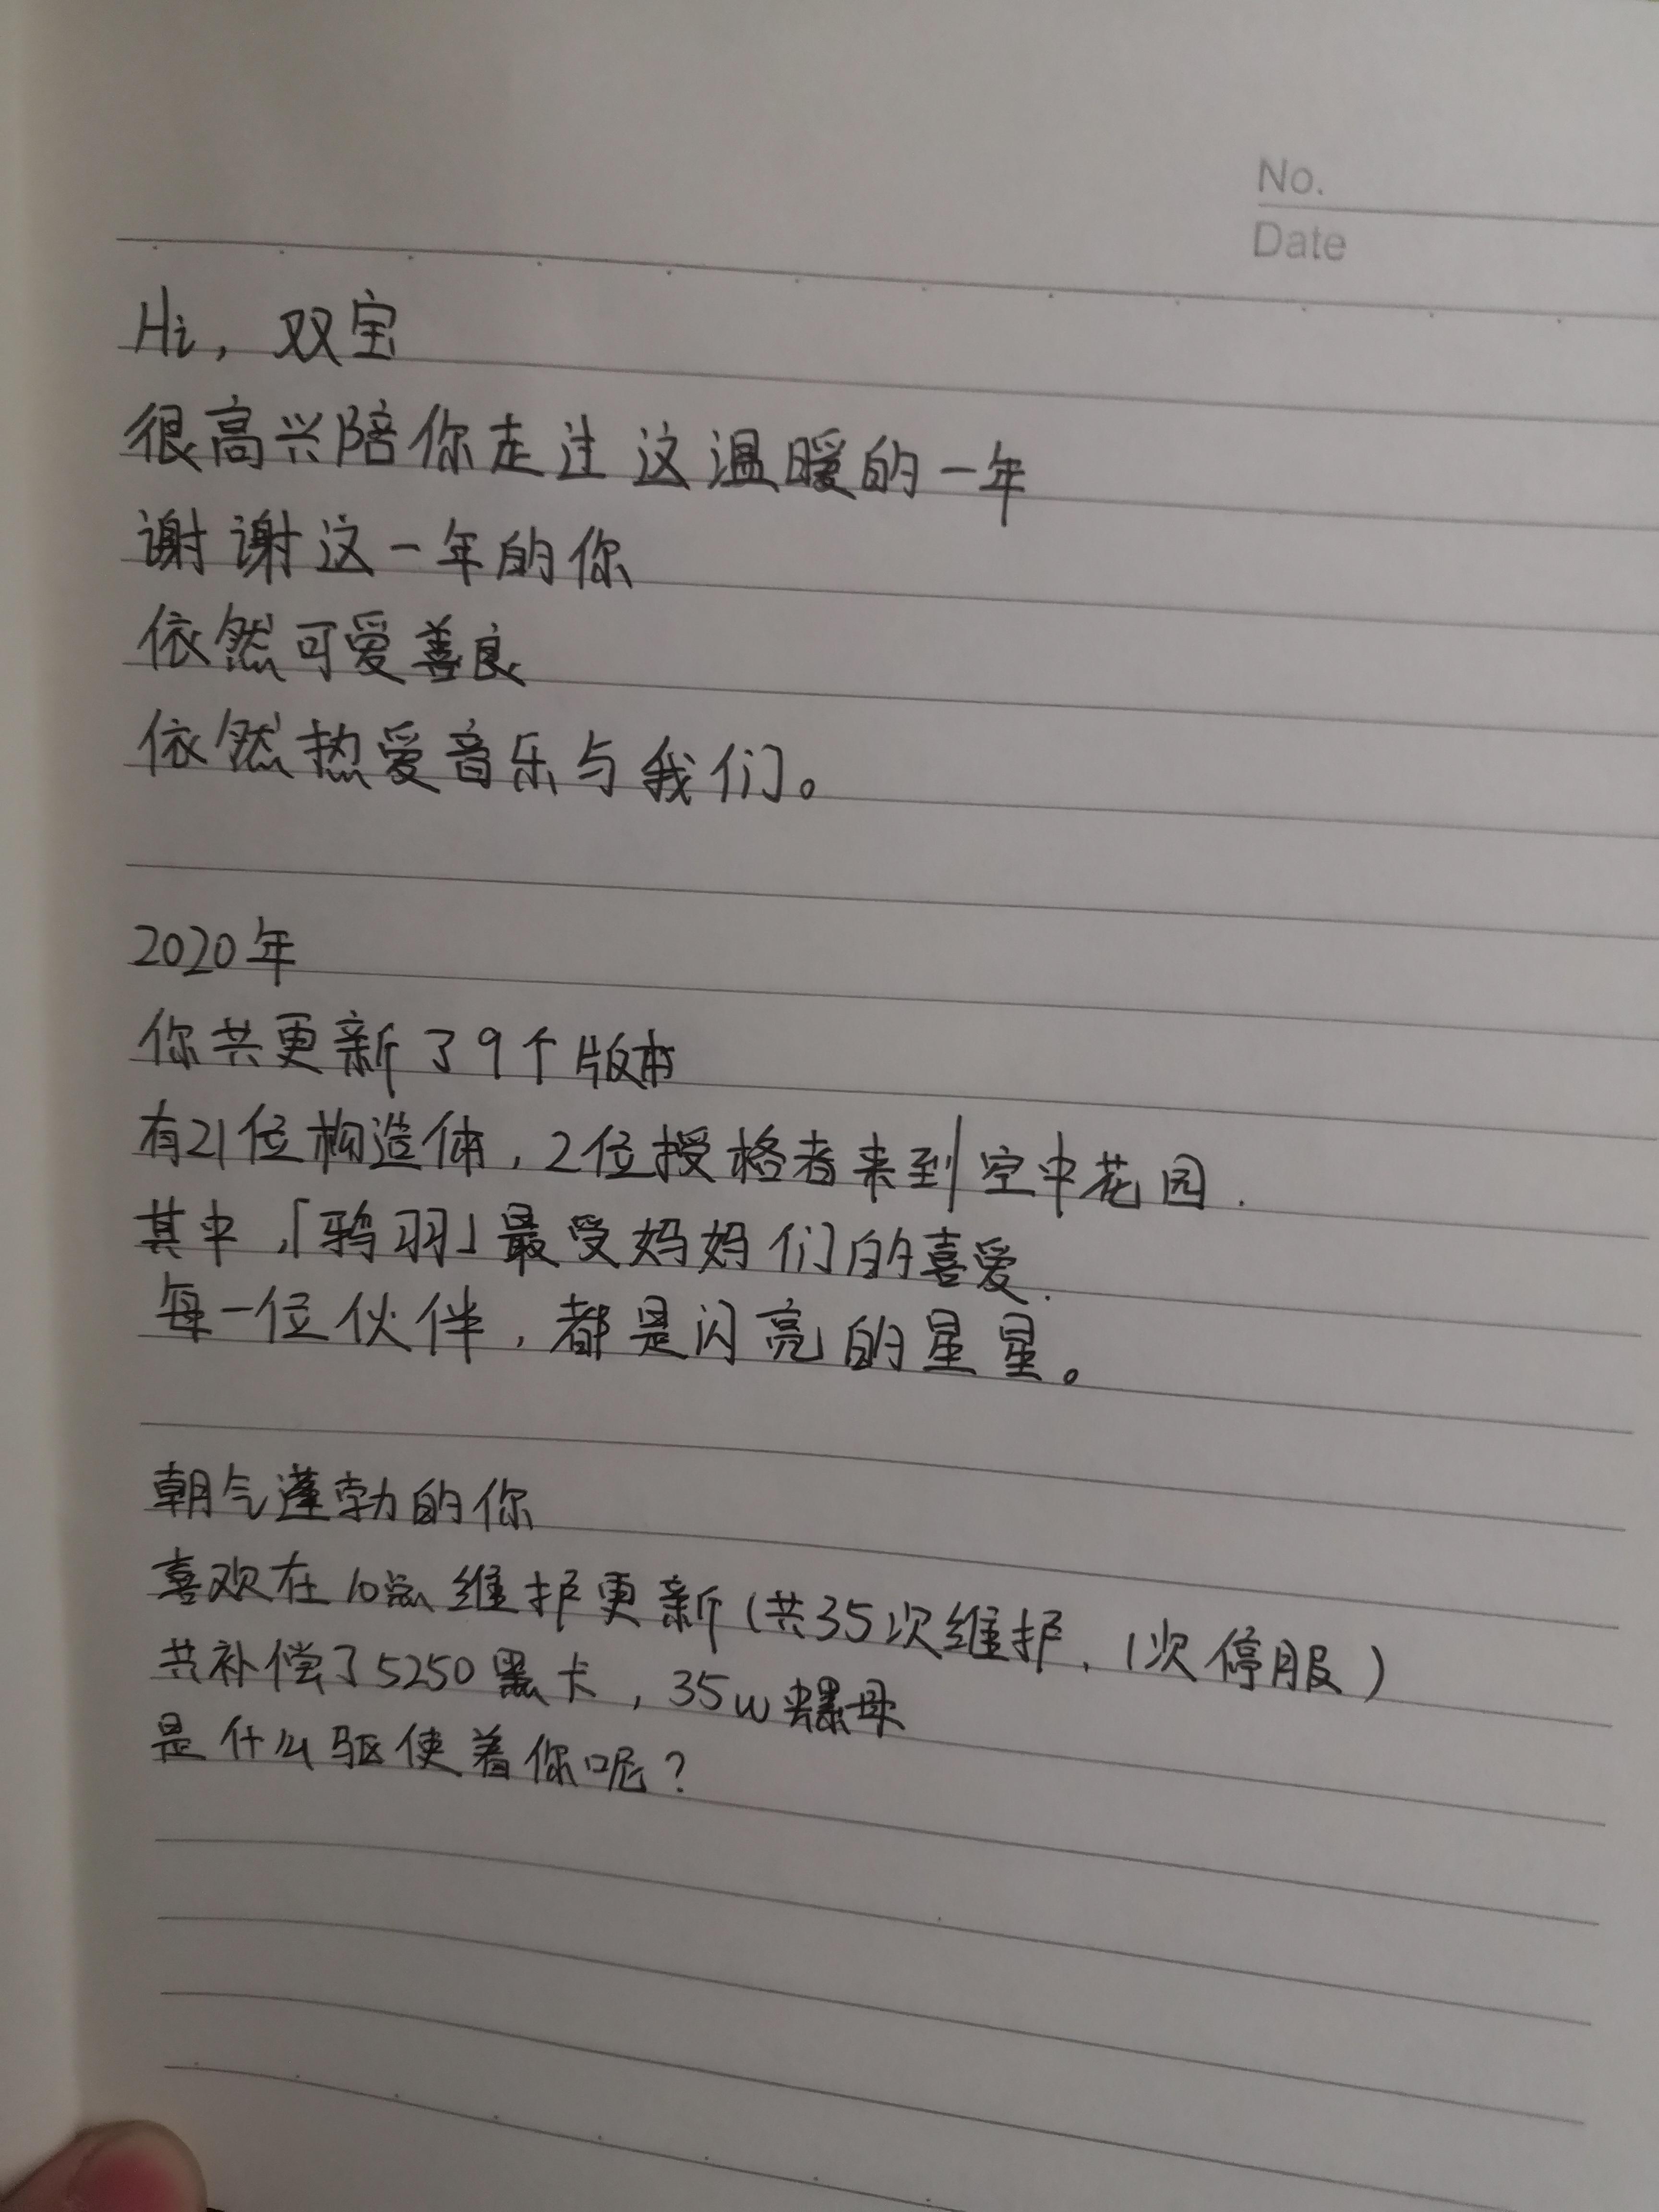 No.
Date
Hi，双宝
很高兴陪你走过这温暖的一年
谢谢这一年的你
依然可爱善良
依然热爱音乐与我们。
2020年
你共更新了9个版本
有21位构造体，2位授格者来到空中花园.
其中，「鸦羽」最受妈妈们的喜爱.
每一位伙伴，都是闪亮的星星。
朝气蓬勃的你
喜欢在10点维护更新（共35次维护、1次停服）
共补偿了5250黑卡，35w螺母
是什么驱使着你呢？